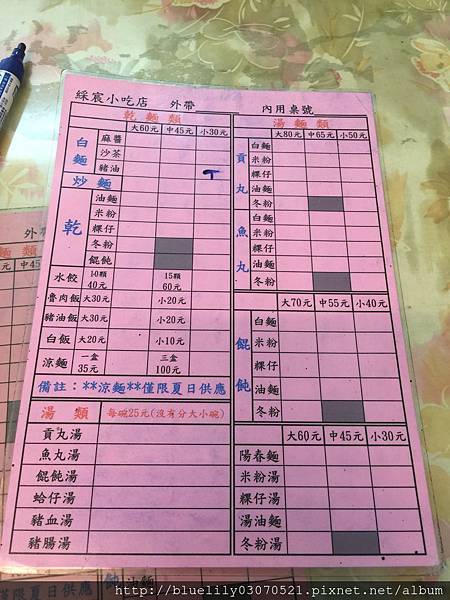 綵宸小吃店 外帶 內用桌號
乾麵類
大60元 中45元 小30元
白麵
麻醬
沙茶
豬油
炒麵
乾
油麵
米粉
粿仔
冬粉
餛飩
水餃 10顆 40元 15顆 60元
魯肉飯 大30元 小20元
豬油飯 大30元 小20元
白飯 大20元 小10元
涼麵 一盒 35元 三盒 100元
備註：**涼麵**僅限夏日供應
湯類 每碗25元(沒有分大小碗)
貢丸湯
魚丸湯
餛飩湯
蛤仔湯
豬血湯
豬腸湯
湯麵類
大80元 中65元 小50元
貢丸
白麵
米粉
粿仔
油麵
冬粉
魚丸
白麵
米粉
粿仔
油麵
冬粉
大70元 中55元 小40元
餛飩
白麵
米粉
粿仔
油麵
冬粉
大60元 中45元 小30元
陽春麵
米粉湯
粿仔湯
湯油麵
冬粉湯
外帶
麵類
元 中45
僅限夏日供應
飩 油麵
http://bluelily03070521.pixnet.net/album